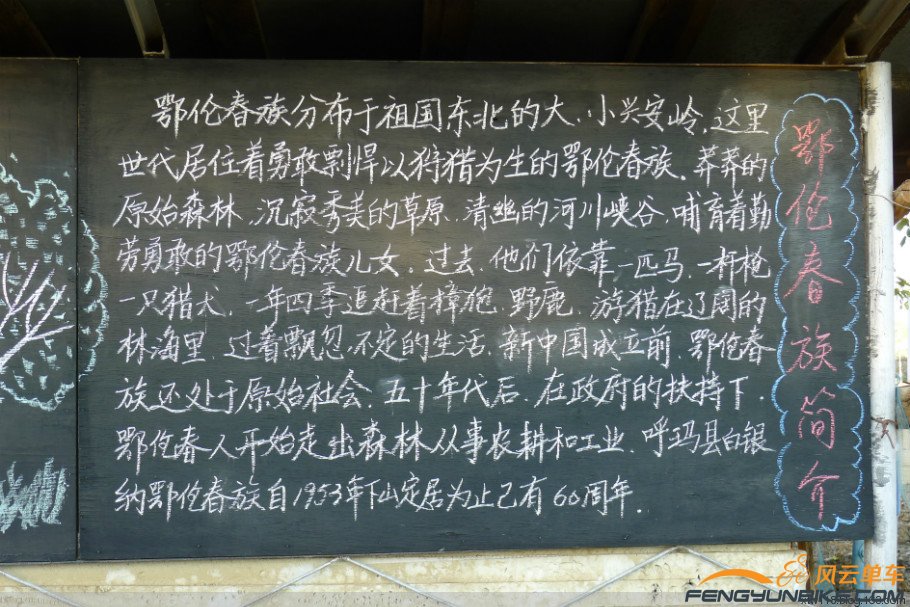 鄂伦春族分布于祖国东北的大、小兴安岭,这里
世代居住着勇敢剽悍以狩猎为生的鄂伦春族.莽莽的
原始森林.沉寂秀美的草原.清幽的河川峡谷.哺育着勤
劳勇敢的鄂伦春族儿女.过去.他们依靠一匹马.一杆枪
一只猎犬.一年四季追赶着樟狍.野鹿.游猎在辽阔的
林海里.过着飘忽不定的生活.新中国成立前.鄂伦春
族还处于原始社会.五十年代后.在政府的扶持下.
鄂伦春人开始走出森林从事农耕和工业.呼玛县白银
纳鄂伦春族自1953年下山定居为止已有60周年.
鄂伦春族简介
风云单车
FENGYUNBIKE.COM